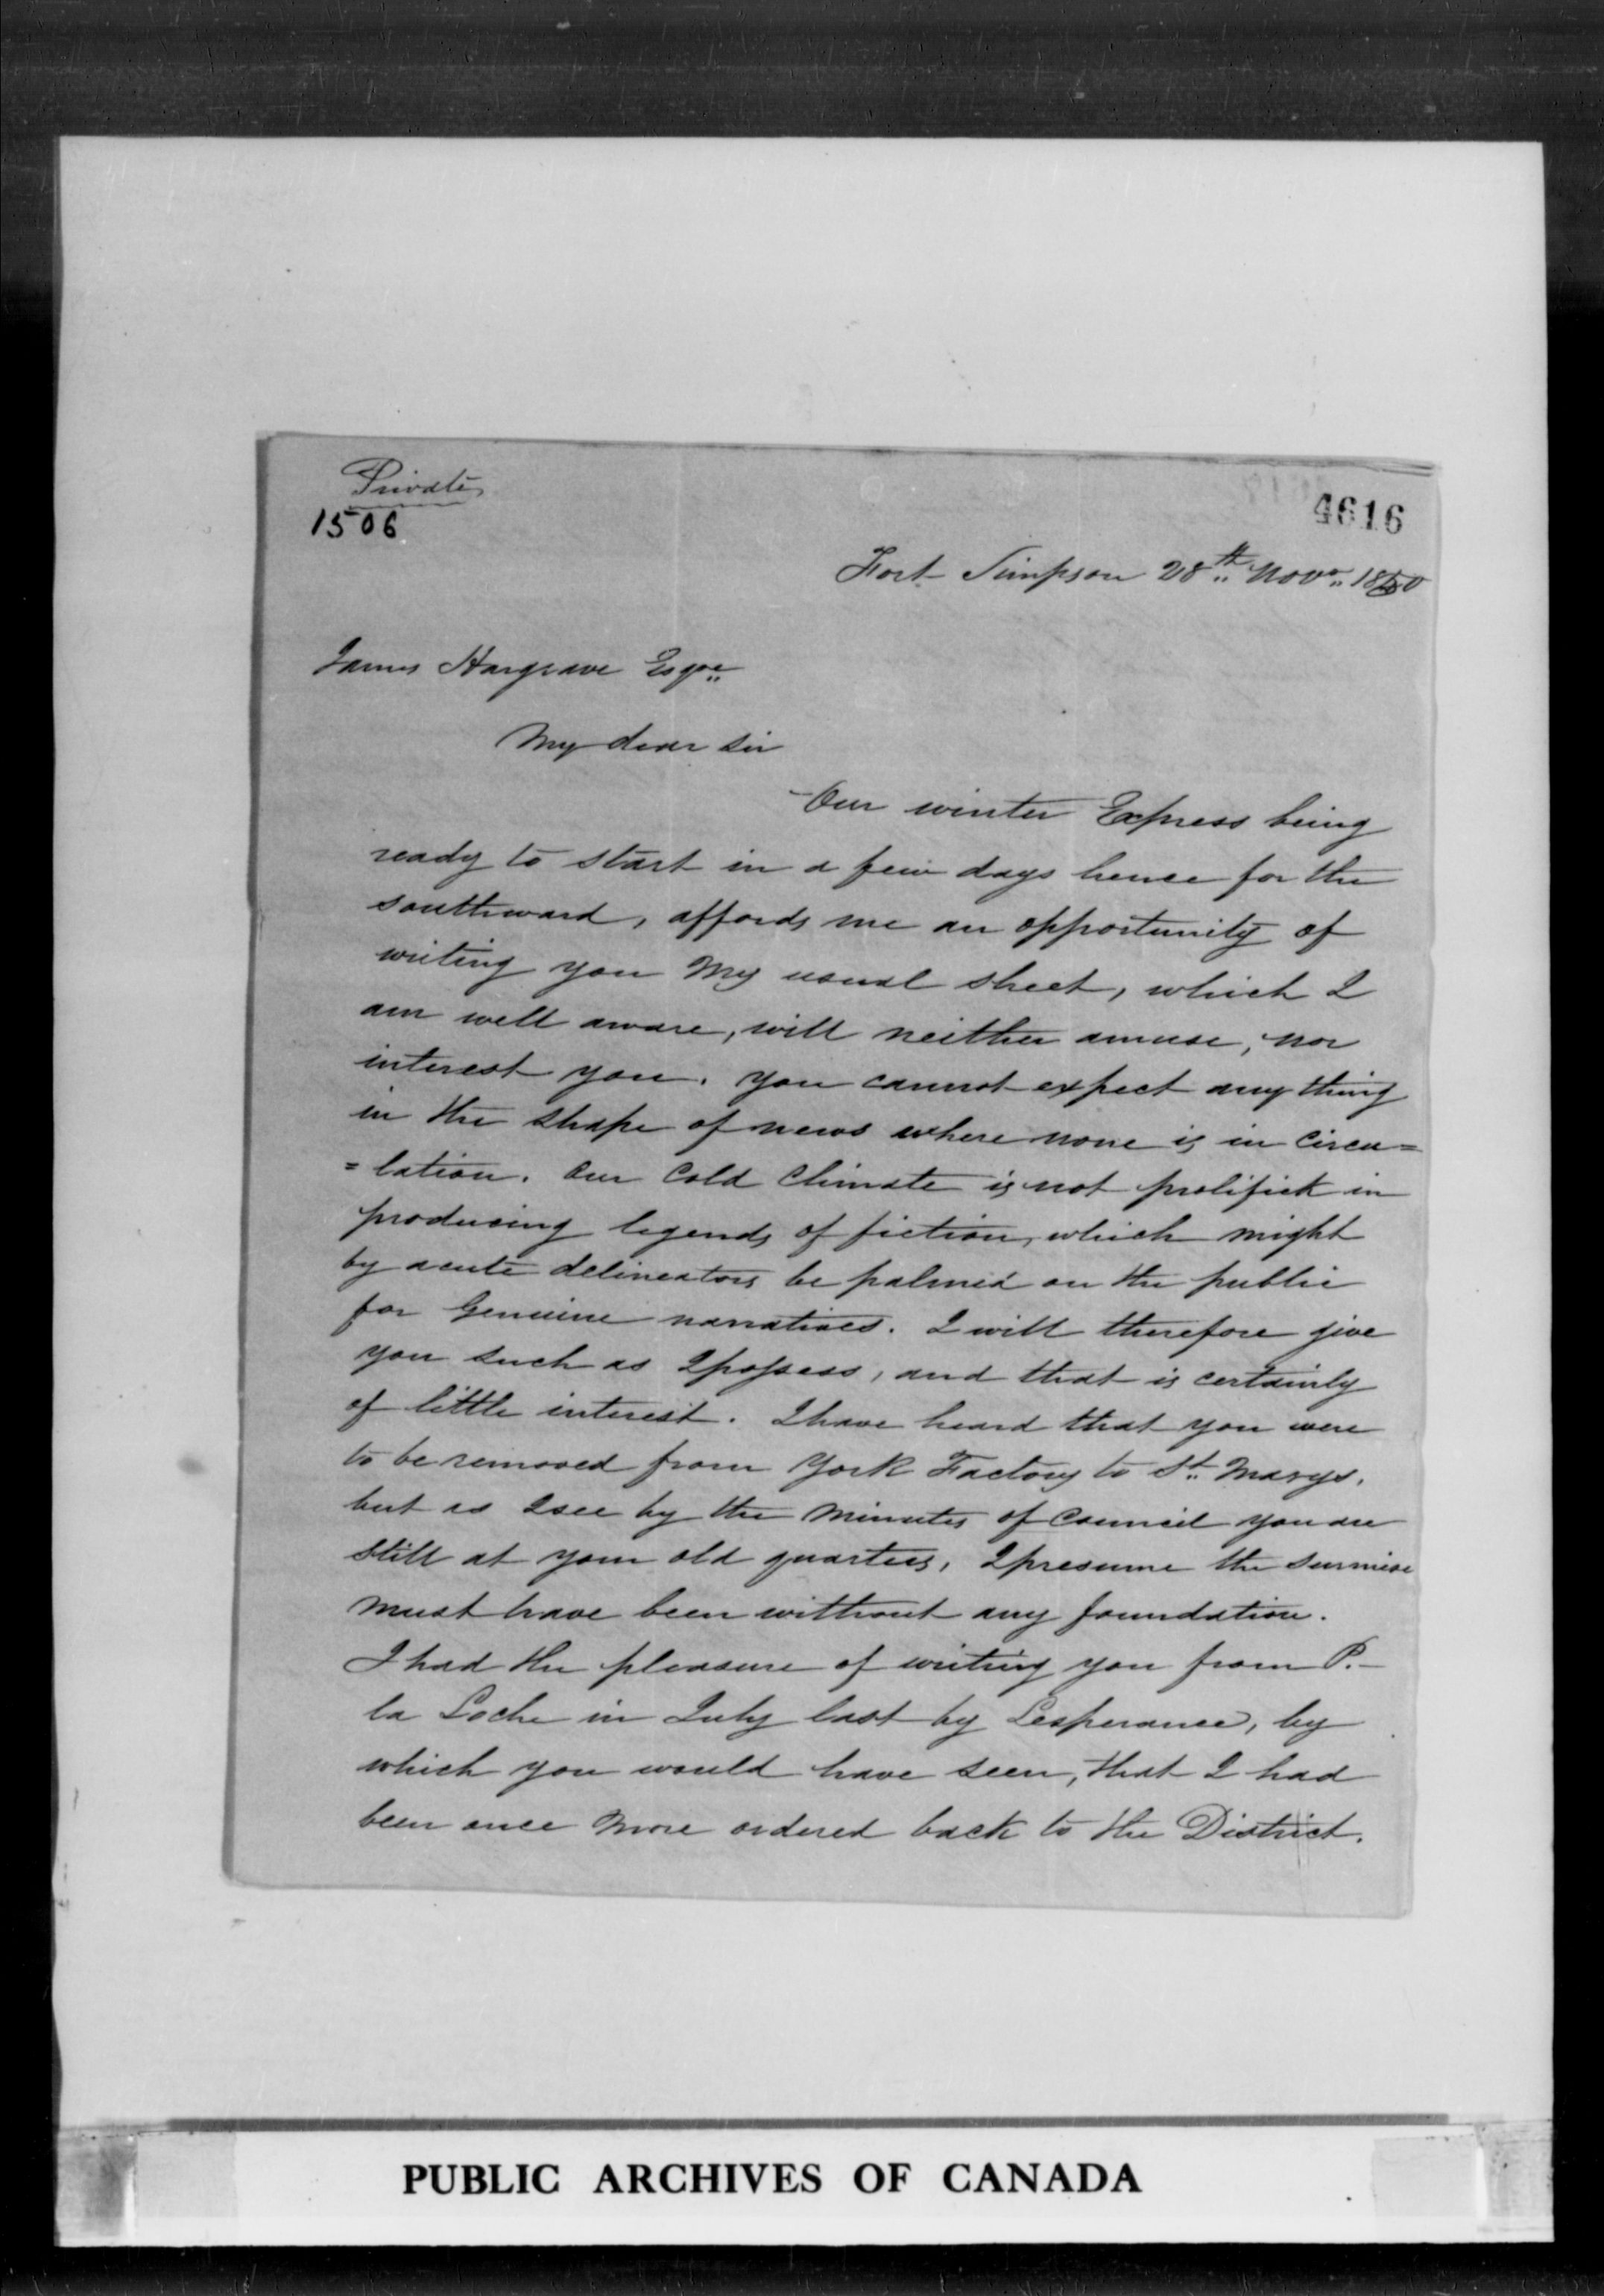 Private
1506
4616
Fort Simpson 28th Novr. 1850
James Hargrave Esqre
My dear Sir
Our winter Express being
ready to start in a few days hence for the
southward, affords me an opportunity of
writing you my usual sheet, which I
am well aware, will neither amuse, nor
interest you. You cannot expect any thing
in the shape of news where none is in circu=
=lation. Our Cold Climate is not prolifick in
producing legends of fiction, which might
by acute delineators be palmed on the public
for Genuine narratives. I will therefore give
you such as I possess, and that is certainly
of little interest. I have heard that you were
to be removed from York Factory to St. Marys,
but as I see by the Minutes of Council you are
still at your old quarters, I presume the surmise
must have been without any foundation.
I had the pleasure of writing you from P.
la Loche in July last by Lesperance, by
which you would have seen, that I had
been once more ordered back to the District.
PUBLIC ARCHIVES OF CANADA